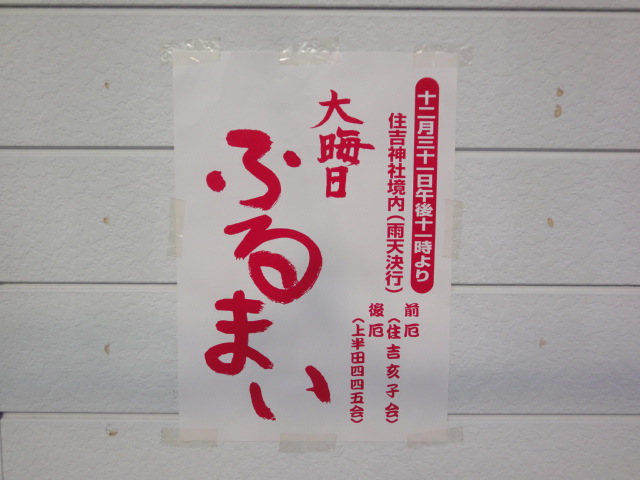 十二月三十一日午後十一時より
住吉神社境内(雨天決行)
大晦日
ふるまい
前厄
(住吉亥子会)
後厄
(上半田四四五会)